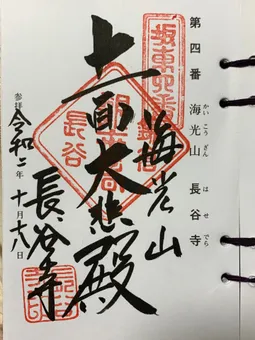 第四番 海光山 長谷寺
かいこうざん はせでら
海光山
十一面大悲殿
長谷寺
参拝 令和二年 十月十八日
長谷